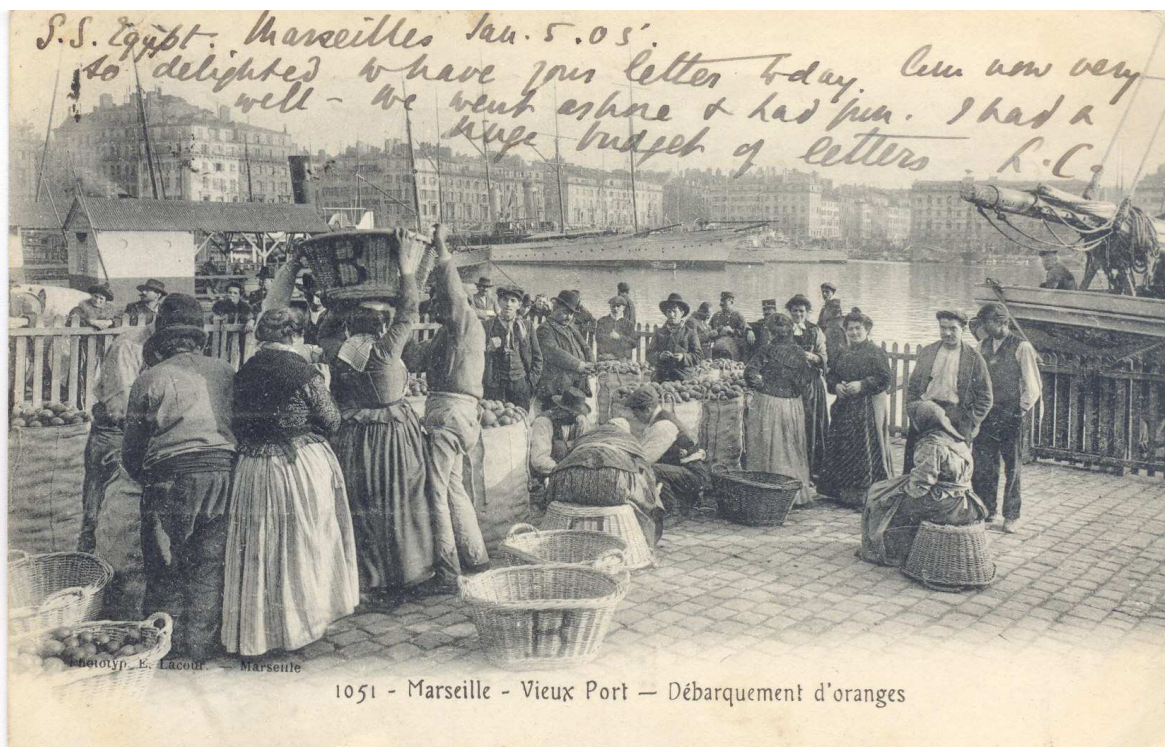 S.S. Egypt. Marseilles Jan. 5. 05.
So delighted to have your letter today. Am now very
well - We went ashore & had fun. I had a
huge budget of letters L.C.
B
Phototyp. E. Lacour. — Marseille
1051 - Marseille - Vieux Port — Débarquement d'oranges